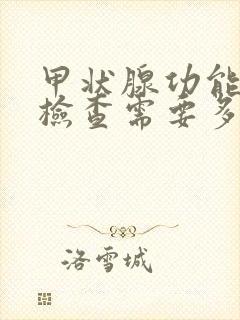 甲状腺功能
檢查需要多
洛雪城